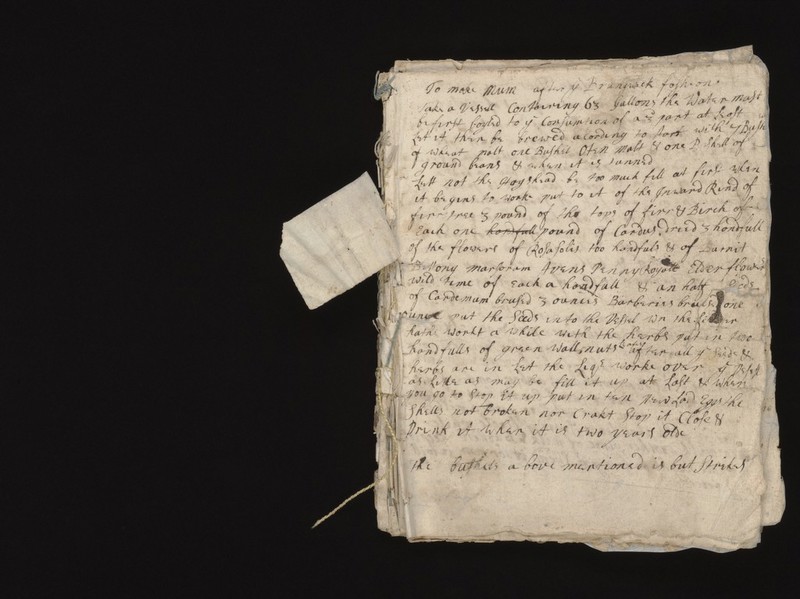 To make Mum after yͤ Brunswick fashion
Take a Vessell Containing 63 Gallons the Water must
be first boyled to yͤ Consumtion of a 3ᵈ part at Least
Let it then be brewed acording to Part with 7 Bush
of wheat malt one Bushel Oten malt & one
ground beans & when it is tunned
Lett not the Hogshead be too much fill at first when
it begins to worke put to it of the Inward Rind of
firr tree 3 pound of the tops of firr & Birch of
Each one pound of Cardus dried 3 handfull
of the flowers of Rosasolis too handfuls & of Burnit
Bettony marjoram Avens Pennyroyall Elder flowers
wild time of Each a handfull & an half Seeds
of Cardemum brused 3 ounces Barberies brused one
ounce put the Seeds into the Vesel wn the
hath workt a while with the herbs put in two
handfulls of green wallnuts after all yͤ Seeds &
herbs are in Let the Liqʳ worke over yͤ Vessel
as Litle as may be fill it up at Last & when
you go to Stop it up put in ten New Laid Eggs the
Shells not broken nor Crakt Stop it Close &
Drink it when it is two years olde
the bushels above mentioned is but Strikes